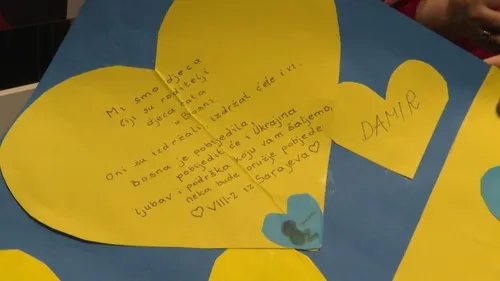 Mi smo djeca
čiji su roditelji
djeca rata
u Bosni
Oni su izdržali izdržat ćete i vi.
Bosna je pobijedila
pobijedit će i Ukrajina
ljubav i podrška koju vam šaljemo,
neka bude oružje pobjede
♡ VIII-2 iz Sarajeva ♡
DAMIR